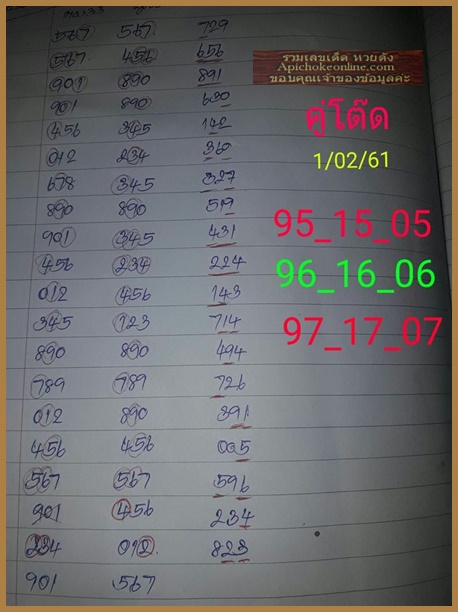 567 567 729
567 456 656
901 890 891
901 890 630
456 345 142
012 234 360
678 345 327
890 890 519
901 345 431
456 234 224
012 456 143
345 123 714
890 890 494
789 789 726
012 890 391
456 456 035
567 567 596
901 456 234
234 012 823
901 567
รวมเลขเด็ด หวยดัง
Apichokeonline.com
ขอบคุณเจ้าของข้อมูลค่ะ
คู่โต๊ด
1/02/61
95_15_05
96_16_06
97_17_07